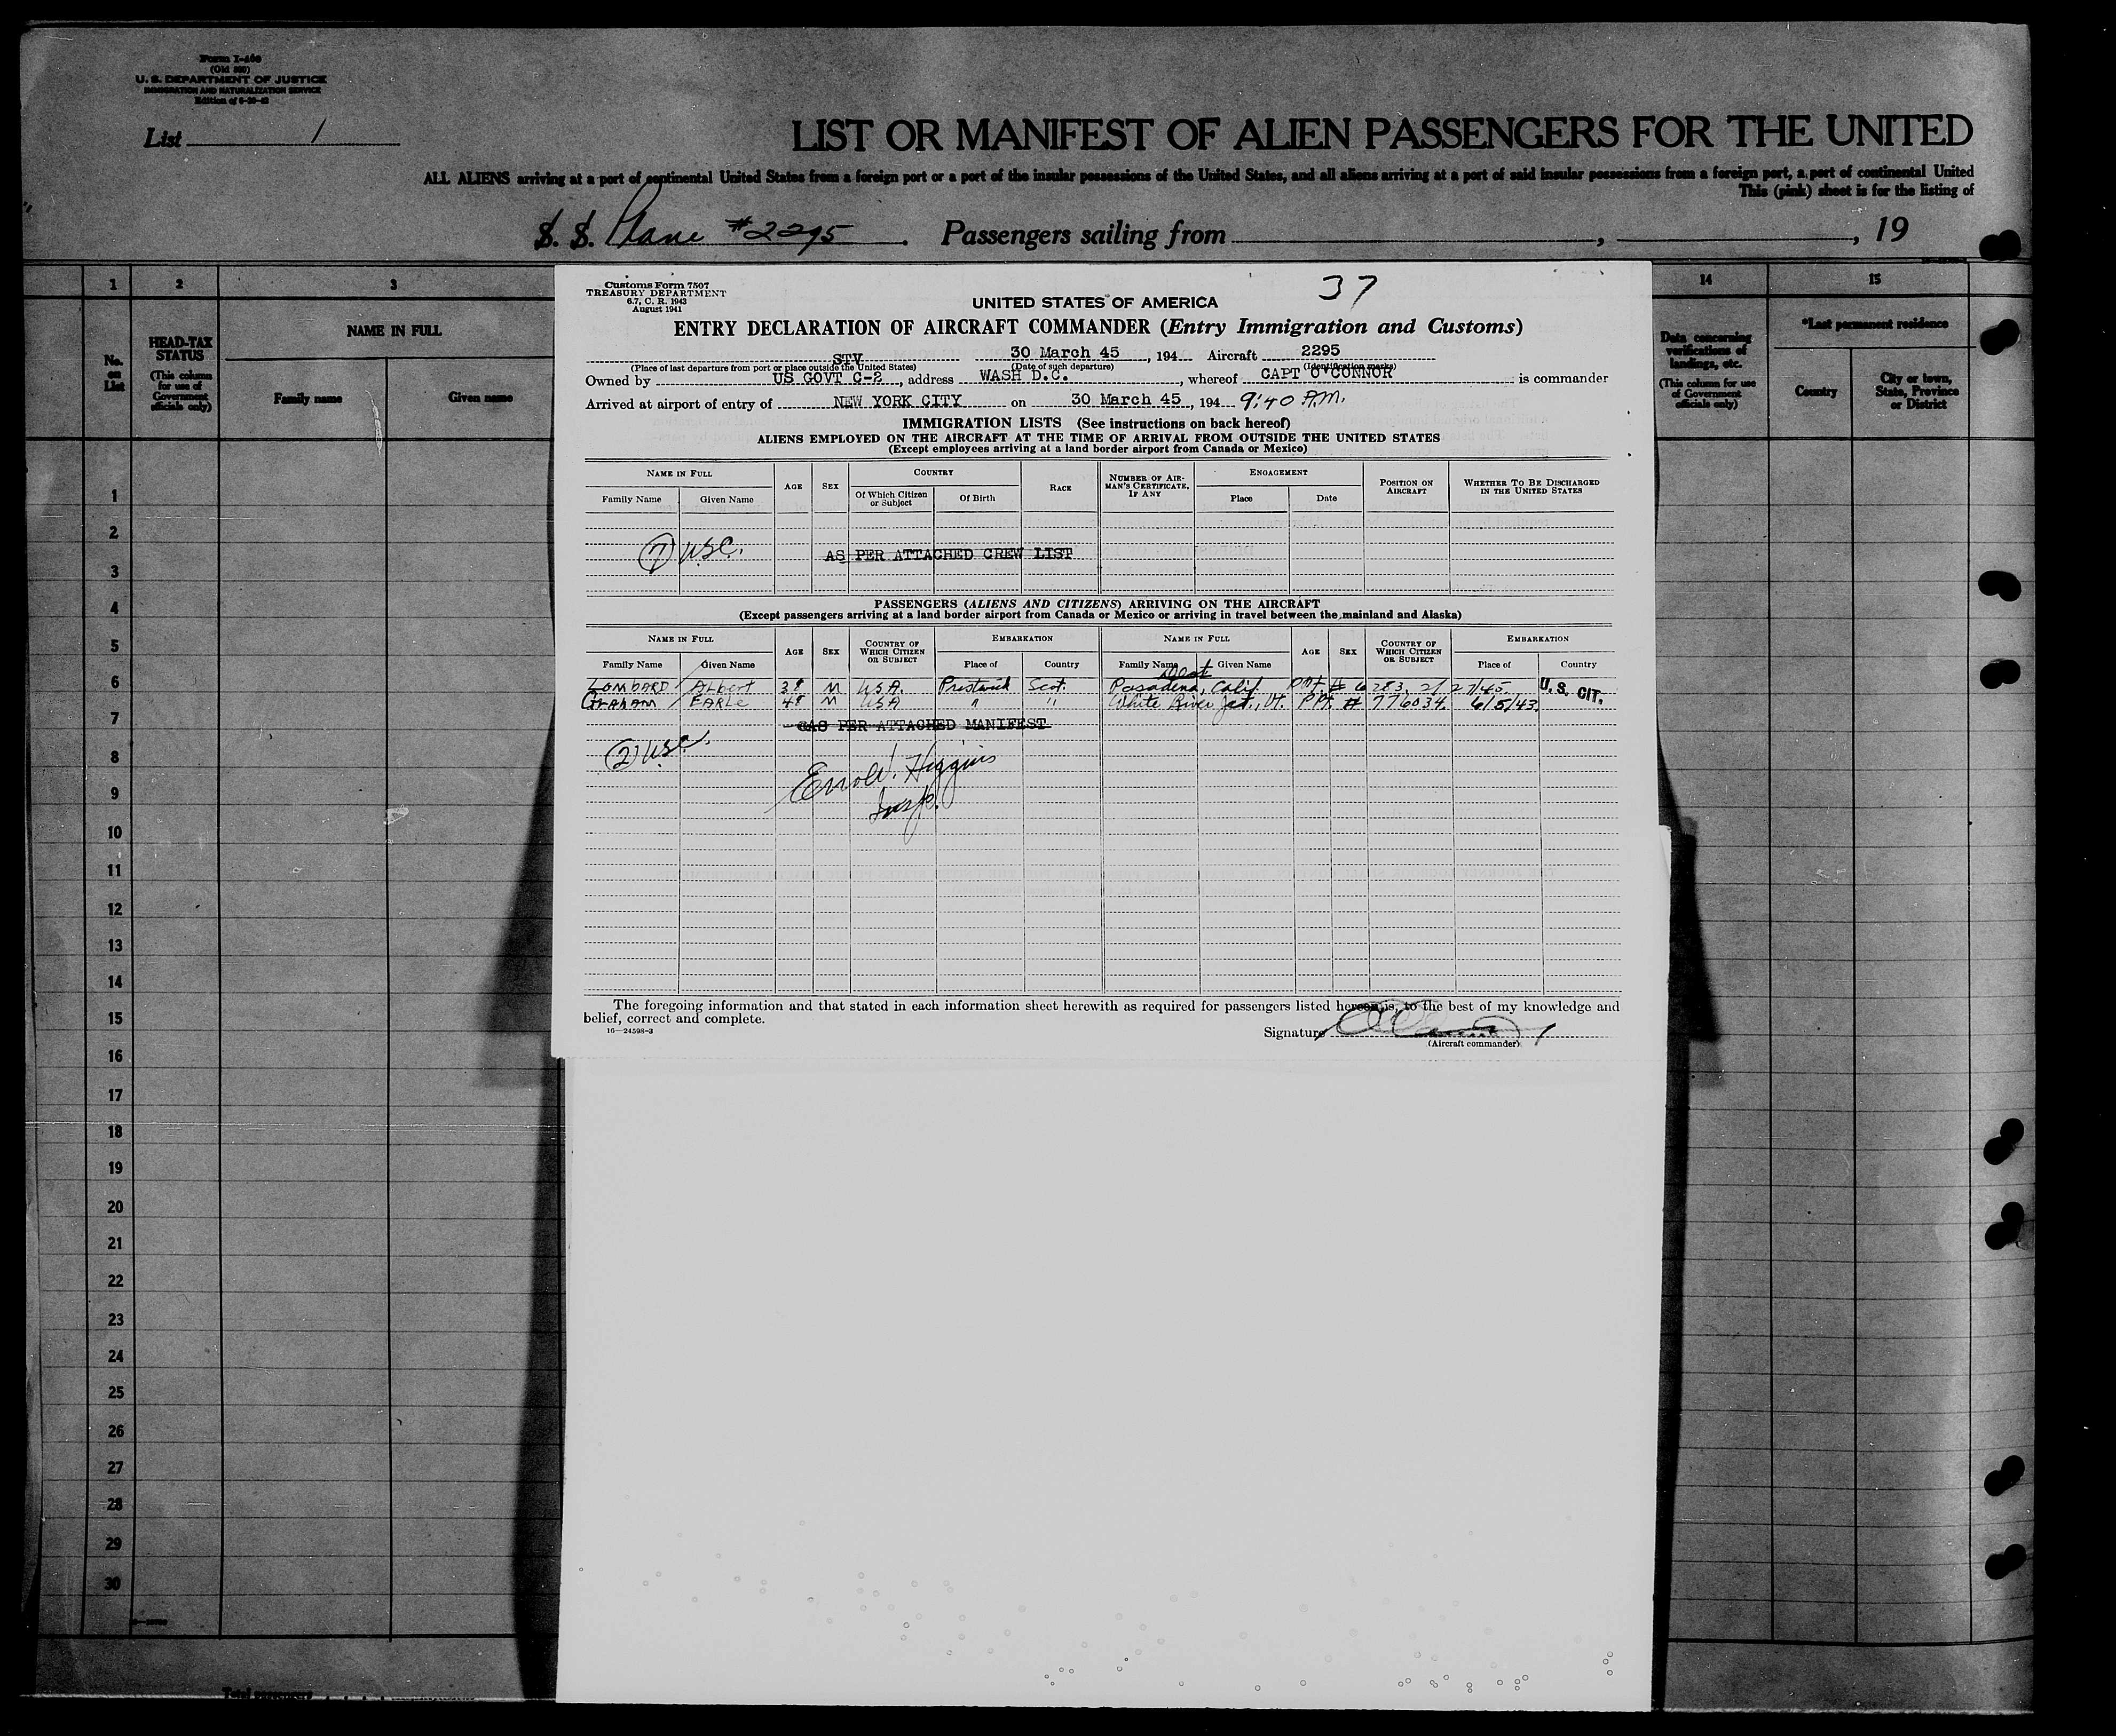 Form I-466
(Old 500)
U. S. DEPARTMENT OF JUSTICE
IMMIGRATION AND NATURALIZATION SERVICE
List 1
LIST OR MANIFEST OF ALIEN PASSENGERS FOR THE UNITED
ALL ALIENS arriving at a port of continental United States from a foreign port or a port of the insular possessions of the United States, and all aliens arriving at a port of said insular possessions from a foreign port, a port of continental United
This (pink) sheet is for the listing of
S. S. Plane #2295. Passengers sailing from , , 19
1 2 3 14 15
No. on List
HEAD-TAX STATUS
(This column for use of Government officials only)
NAME IN FULL
Family name Given name
Data concerning verifications of landings, etc.
(This column for use of Government officials only)
*Last permanent residence
Country
City or town, State, Province or District
Customs Form 7507
TREASURY DEPARTMENT
6.7, C. R. 1943
August 1941
37
UNITED STATES OF AMERICA
ENTRY DECLARATION OF AIRCRAFT COMMANDER (Entry Immigration and Customs)
STV 30 March 45, 194 Aircraft 2295
(Place of last departure from port or place outside the United States) (Date of such departure) (Identification marks)
Owned by US GOVT C-2, address WASH D.C., whereof CAPT O'CONNOR is commander
Arrived at airport of entry of NEW YORK CITY on 30 March 45, 194 9:40 A.M.
IMMIGRATION LISTS (See instructions on back hereof)
ALIENS EMPLOYED ON THE AIRCRAFT AT THE TIME OF ARRIVAL FROM OUTSIDE THE UNITED STATES
(Except employees arriving at a land border airport from Canada or Mexico)
NAME IN FULL
Family Name Given Name
AGE SEX
COUNTRY
Of Which Citizen or Subject Of Birth
RACE
NUMBER OF AIRMAN'S CERTIFICATE, IF ANY
ENGAGEMENT
Place Date
POSITION ON AIRCRAFT
WHETHER TO BE DISCHARGED IN THE UNITED STATES
7 USC.
AS PER ATTACHED CREW LIST
PASSENGERS (ALIENS AND CITIZENS) ARRIVING ON THE AIRCRAFT
(Except passengers arriving at a land border airport from Canada or Mexico or arriving in travel between the mainland and Alaska)
NAME IN FULL AGE SEX COUNTRY OF WHICH CITIZEN OR SUBJECT EMBARKATION NAME IN FULL AGE SEX COUNTRY OF WHICH CITIZEN OR SUBJECT EMBARKATION
Family Name Given Name Place of Country Family Name Given Name Place of Country
Dest
LOMBARD Albert 38 M USA. Prestwick Scot. Pasadena, Calif. PPt # 6283. 2/27/45. U.S. CIT.
GRAHAM EARLE 48 M USA " " White River Jct., Vt. PPt. # 776034. 6/5/43.
AS PER ATTACHED MANIFEST
2 USC.
Errol W. Higgins
Insp.
The foregoing information and that stated in each information sheet herewith as required for passengers listed hereon is, to the best of my knowledge and
belief, correct and complete.
16—24598-3
Signature
(Aircraft commander)
1
2
3
4
5
6
7
8
9
10
11
12
13
14
15
16
17
18
19
20
21
22
23
24
25
26
27
28
29
30
Total passengers